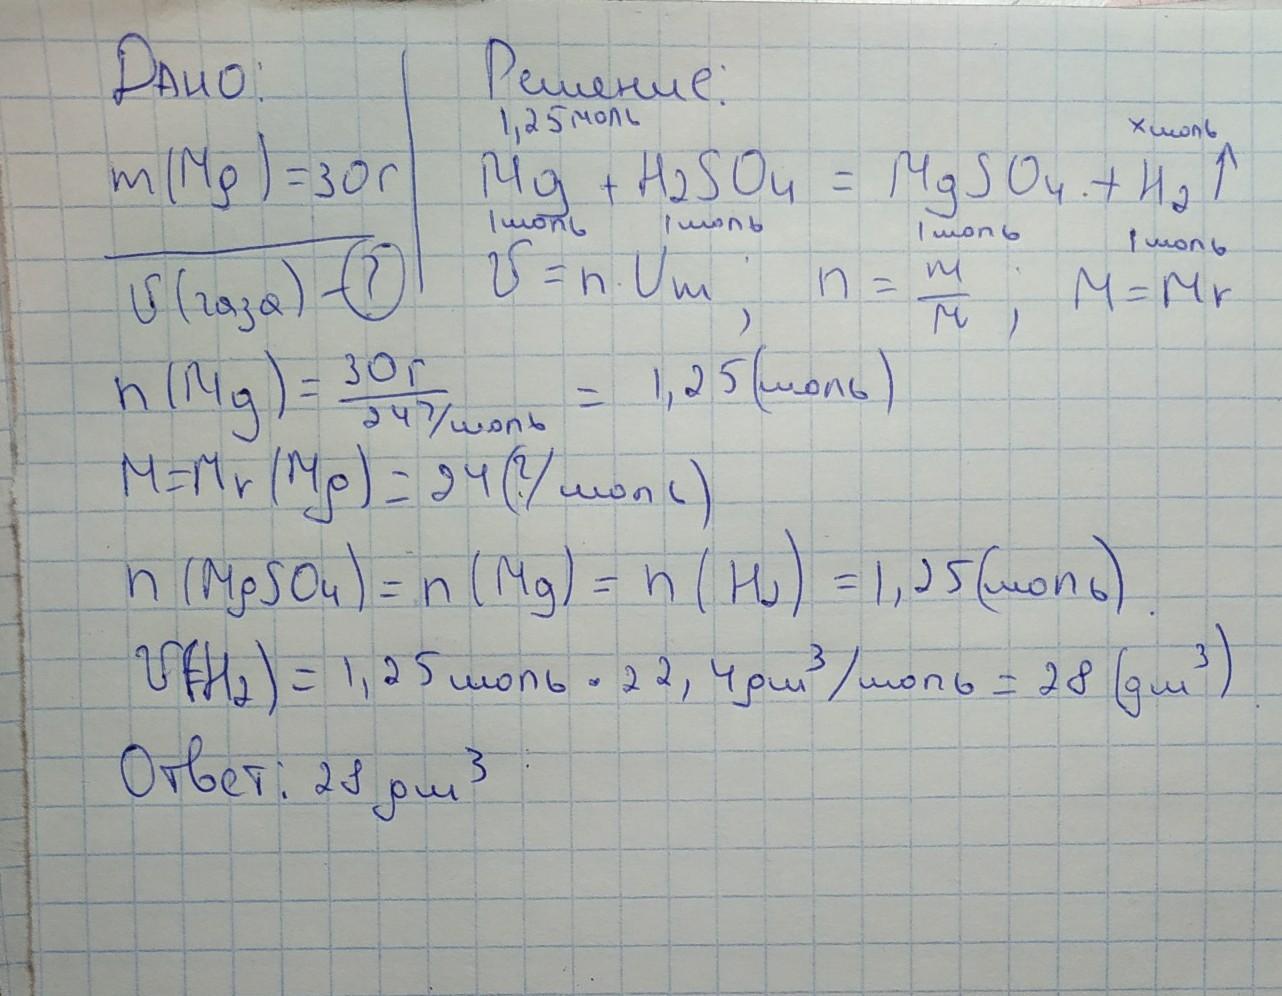 Дано:
Решение:
1,25 моль
x моль
m(Mg)=30г
Mg + H2SO4 = MgSO4 + H2↑
1 моль 1 моль 1 моль 1 моль
V(газа) – ?
V = n · Vm ; n = m/M ; M = Mr
n(Mg) = 30г / 24 г/моль = 1,25(моль)
M=Mr(Mg)=24(г/моль)
n(MgSO4)=n(Mg)=n(H2)=1,25(моль).
V(H2)=1,25моль·22,4дм³/моль=28(дм³)
Ответ: 28 дм³